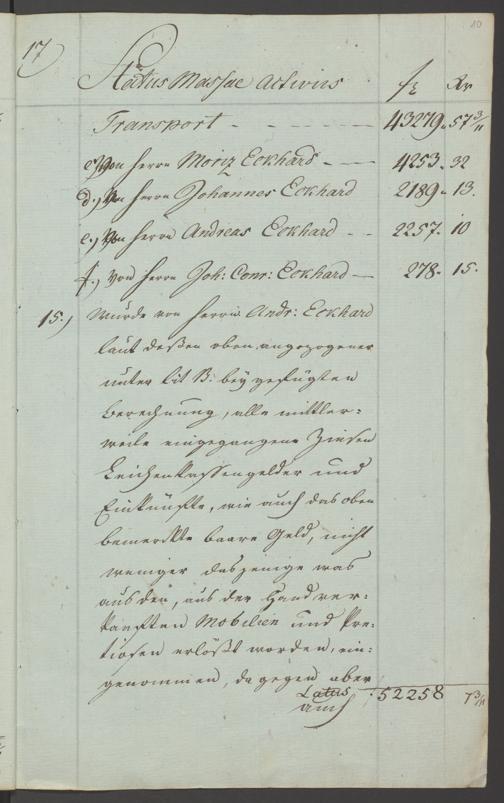 10
17)
Status Massae activus fl Xr
Transport - - - - 43279. 57 3/11
c.) Von Herrn Moriz Eckhard - - 4253. 32
d.) Von Herrn Johannes Eckhard 2189. 13.
e.) Von Herrn Andreas Eckhard - - 2257. 10
f.) Von Herrn Joh: Conr: Eckhard - 278. 15.
15.) Wurde von Herrn Andr: Eckhard
laut deßen oben angezogener
unter Lit B: beÿ gefügten
Berechnung, alle mittler=
weile eingegangene Zinsen
Leichenkassengelder und
Einkünfte, wie auch das oben
bemerckte baare Geld, nicht
weniger dasjenige was
aus den, aus der Hand ver=
kauften Mobilien und Pre=
tiosen erlößt worden, ein=
genommen, dagegen aber
Latus 52258 7 3/11
auch